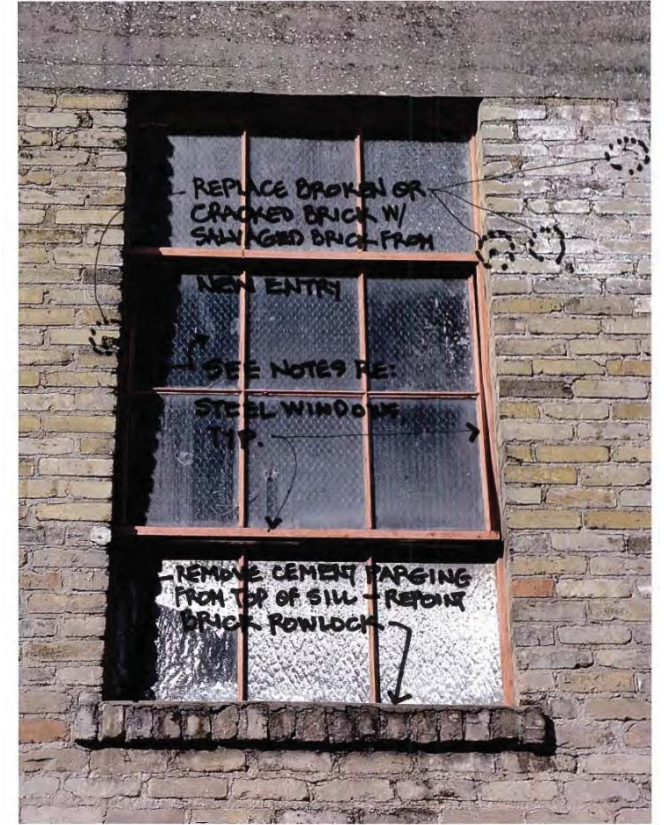 - REPLACE BROKEN OR
CRACKED BRICK W/
SALVAGED BRICK FROM
NEW ENTRY
SEE NOTES RE:
STEEL WINDOWS,
TYP.
- REMOVE CEMENT PARGING
FROM TOP OF SILL - REPOINT
BRICK ROWLOCK